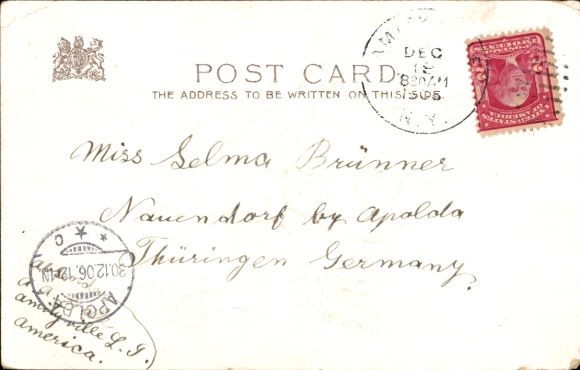 POST CARD.
THE ADDRESS TO BE WRITTEN ON THIS SIDE.
DEC
19
830AM
N.Y.
Miss Selma Brünner
Nauendorf by Apolda
Thüringen Germany.
APOLDA
30.12.06.12-1N
C
amityville L. I.
america.